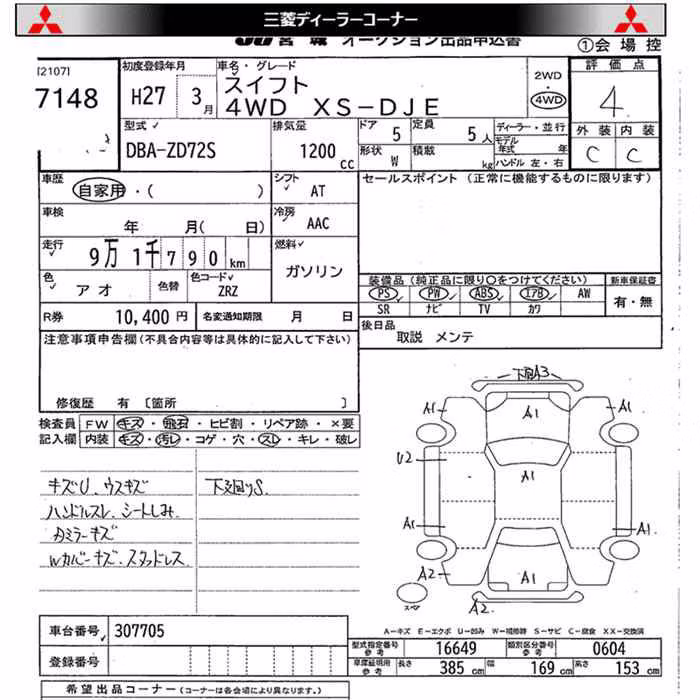 三菱ディーラーコーナー
JU 宮城 オークション出品申込書
①会場控
[2107]
7148
初度登録年月
H27 3月
車名・グレード
スイフト
4WD XS-DJE
2WD
4WD
評価点
4
外装 内装
C C
型式
DBA-ZD72S
排気量
1200 cc
ドア 5
定員 5人
形状 W
積載 kg
ディーラー・並行
モデル年式 年
ハンドル 左・右
車歴
自家用・( )
シフト
AT
セールスポイント (正常に機能するものに限ります)
車検
年 月( 日)
冷房
AAC
走行
9万1千790km
燃料
ガソリン
色
アオ
色替
色コード
ZRZ
装備品 (純正品に限り○をつけてください)
PS PW ABS エアB AW
SR ナビ TV カワ
新車保証書
有・無
R券 10,400円
名変通知期限 月 日
後日品
取説 メンテ
注意事項申告欄 (不具合内容等は具体的に記入して下さい)
修復歴 有 [箇所 ]
検査員記入欄
FW キズ・飛石・ヒビ割・リペア跡・×要
内装 キズ・汚レ・コゲ・穴・スレ・キレ・破レ
キズU、ウスキズ
ハンドルスレ、シートしみ
カミラーキズ
Wカバーキズ、スタッドレス
下廻りS
下回A3
A1
A1
A1
U2
A1
A1
A1
A2
A1
A2
スペア
A-キズ E-エクボ U-凹み W-補修跡 S-サビ C-腐食 XX-交換済
車台番号 307705
登録番号
型式指定番号 参考 16649
類別区分番号 参考 0604
車庫証明用 参考 長さ 385cm 幅 169cm 高さ 153cm
希望出品コーナー (コーナーは各会場により異なります。)